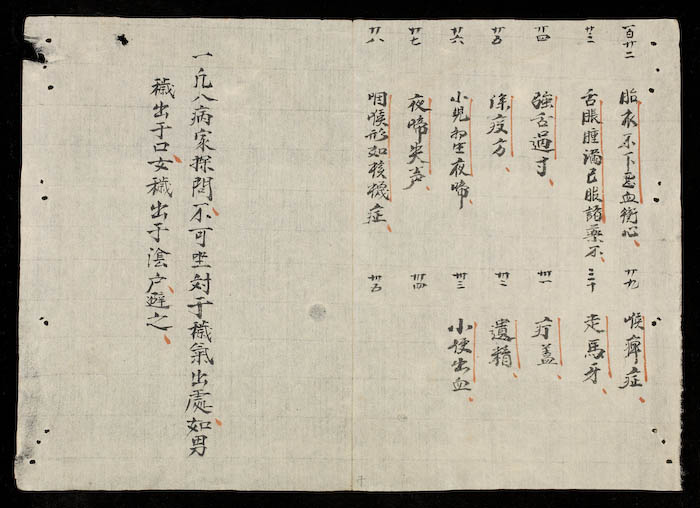 百廿二 胎衣不下惡血衝心
廿三 舌脹腫滿已服諸藥不
廿四 強舌過寸
廿五 除疫方
廿六 小兒初生夜啼
廿七 夜啼失声
廿八 咽喉形如核機症
廿九 喉痹症
三十 走馬牙
卅一 疔蓋
卅二 遺精
卅三 小便出血
卅四
卅五
一凡入病家探問不可坐对于穢氣出處如男
穢出于口女穢出于陰户避之